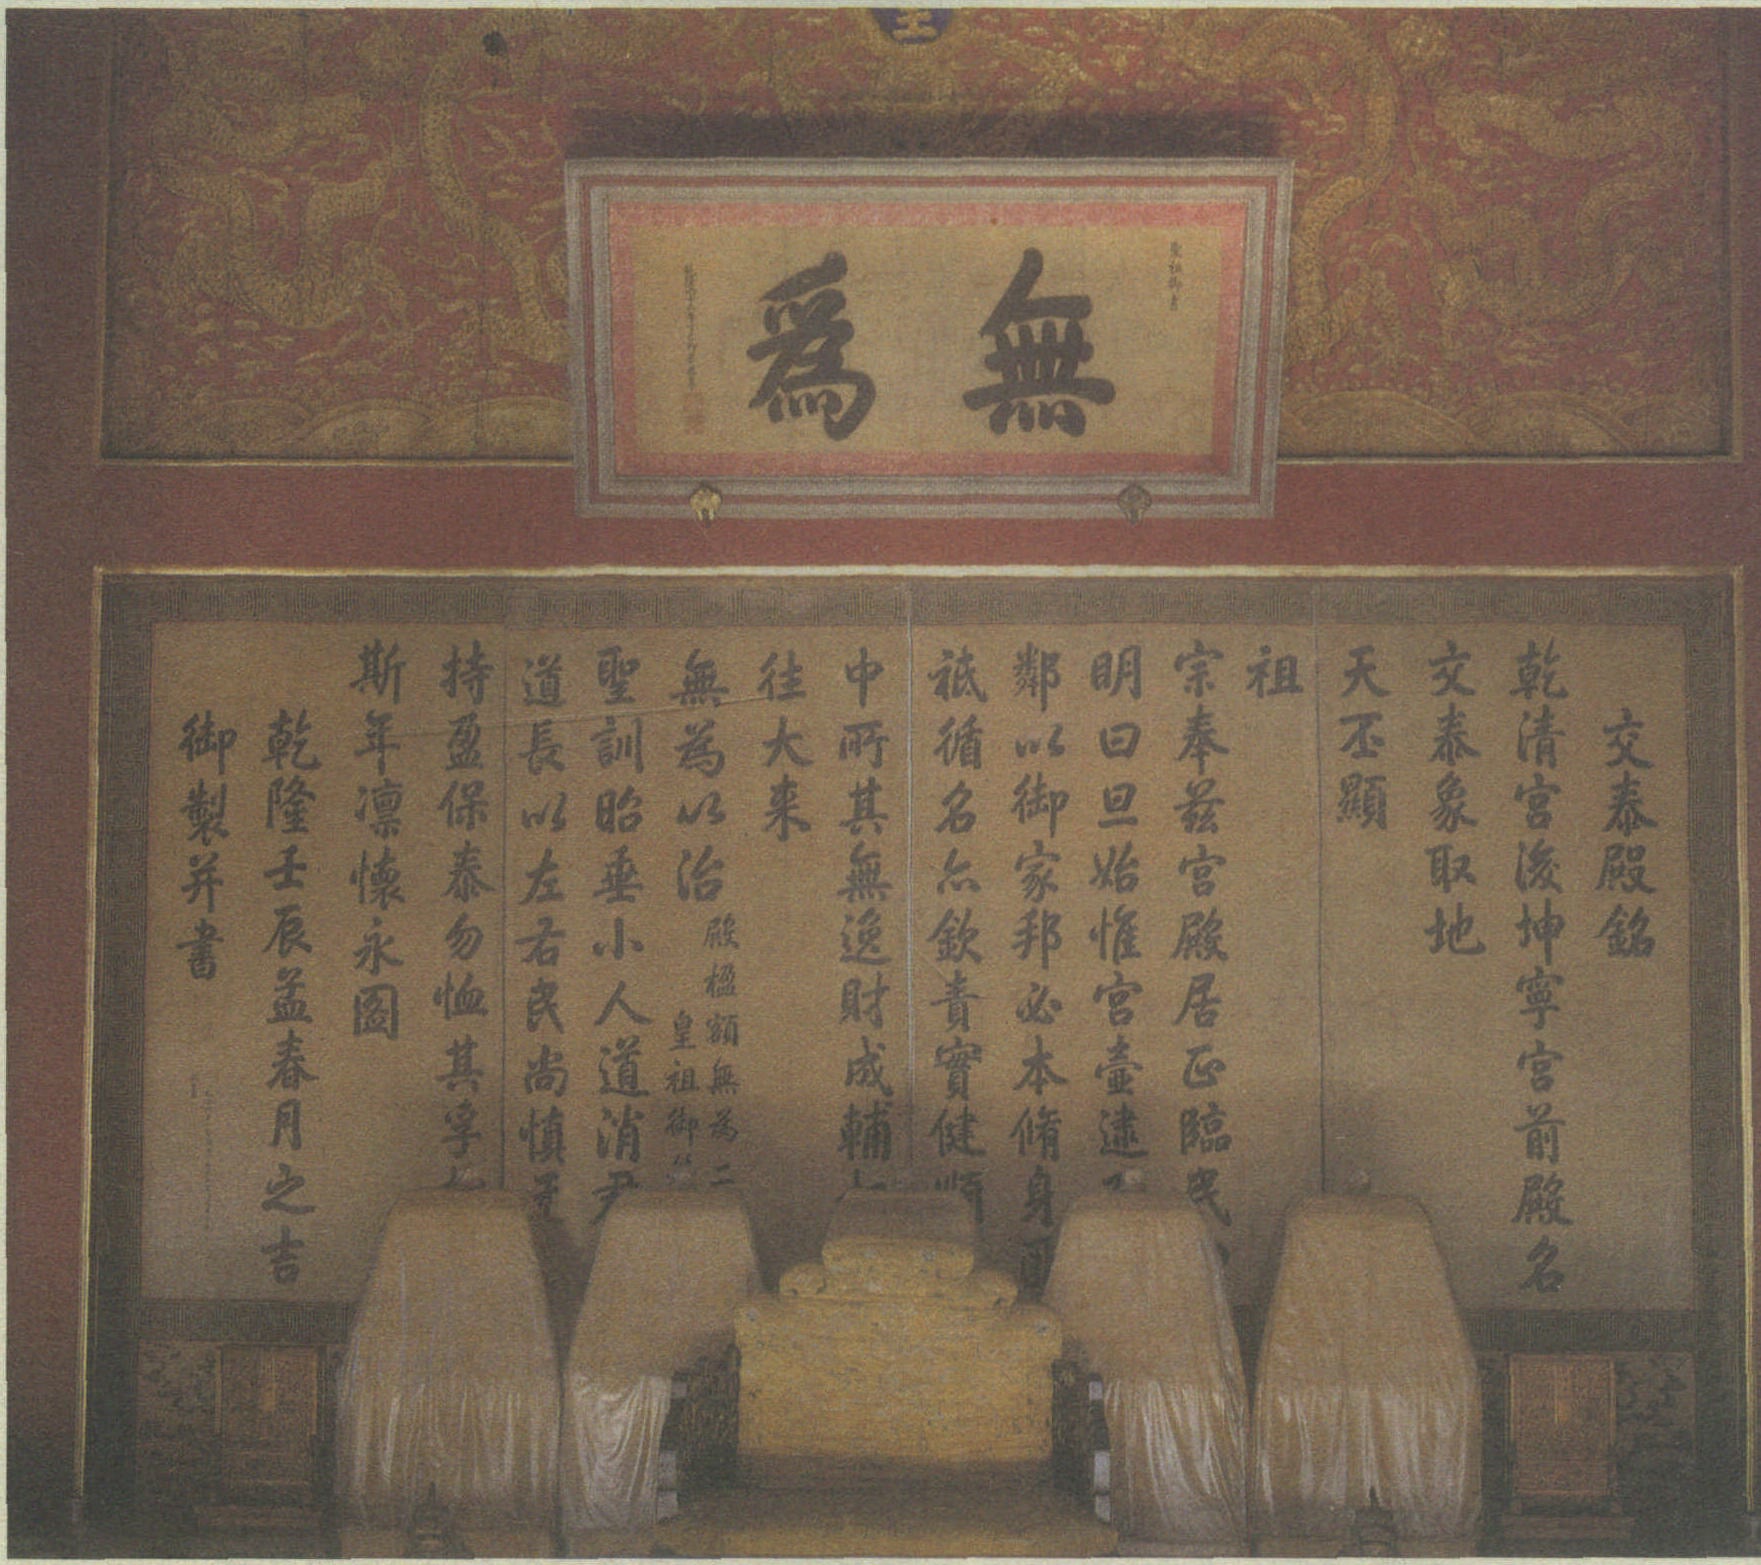 無爲
交泰殿銘
乾清宮後坤寧宮前殿名
交泰象取地
天丕顯
祖
宗奉茲宮殿居正臨民
明曰旦始惟宮壼逮
鄰以御家邦必本脩身
祗循名亦欽責實健順
中所其無逸財成輔
往大来
無為以治
殿楹額無為二
皇祖御
聖訓昭垂小人道消君
道長以左右民尚慎
持盈保泰勿恤其孚
斯年凛懷永圖
乾隆壬辰孟春月之吉
御製并書